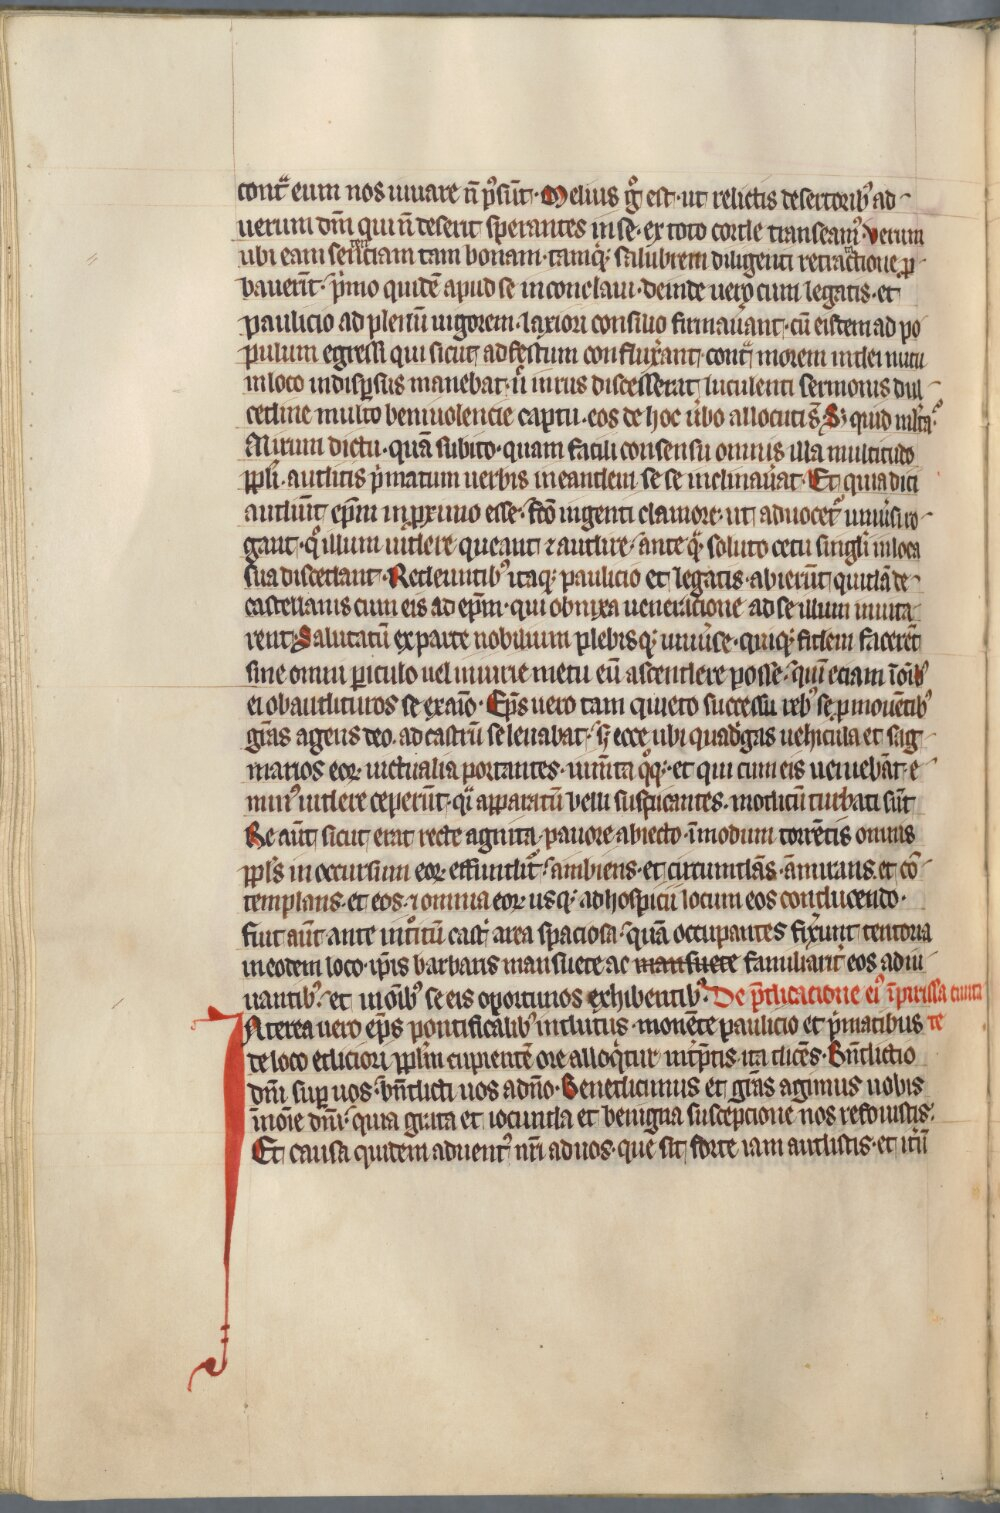 contͣ eum nos iuuare n̄ p̾sūt· Melius gͦ est· ut relictis desertorib᷒ ad-
uerum dn̄m qui n̄ deserit sperantes in se· ex toto corde transeam᷒· Verum
ubi eam sentenciam tam bonam· tamq᷒ salubrem diligenti retractatione p-
bauer̄t· p̾mo quidē apud se in conclaui· deinde uero cum legatis· et
paulicio ad plenū uigorem· laxiori consilio firmauant· cū eisdem ad po
pulum egressi qui sicut ad festum confluxant· contͣ morem indei nutu
in loco indispersus manebat· ū in rus discesserat luculenti sermonis dul-
cedine multo beniuolencie captu· eos de hoc ūbo allocuti s̄· Sꝫ quid mlͭa·
Mirum dictu· quā subito· quam facili consensu omnis illa multitudo
ppl̄i· auditis p̾matum uerbis in eandem se se inclinaūat· Et quia dici
audiūt ep̄m in pximo esse· fc̄o ingenti clamore· ut aduocet᷒ uniūsi ro-
gant· qͦ illum uidere queant ⁊ audire· ante qͣ soluto cetu singl̄i in loca
sua discedant· Redeuntib᷒ itaqꝫ paulicio et legatis· abierūt quidā de-
castellanis cum eis ad ep̄m· qui obnixa ueneracione ad se illum inuita-
rent· Salutatū ex parte nobilium plebisqꝫ uniūse· quiqꝫ fidem facerēt
sine omni piculo uel iniurie metu eū ascendere posse· quī eciam ī oīb᷒
ei obaudituros se ex aīo· Ep̄s uero tam quieto successu reb᷒ se pmouētib᷒
gr̄as agens deo· ad castrū se leuabat· sꝫ ecce ubi quadͥgas uehicula et sag-
marios eoꝝ uictualia portantes· iumta qͦqꝫ· et qui cum eis ueniebāt· e-
min᷒ uidere ceperūt· qͣi apparatū belli suspicantes· modicū turbati sūt
Re aūt sicut erat recte agnita· pauore abiecto· ī modum torrētis omnis
ppl̄s in occursum eoꝝ effundit᷒· ambiens· et circumdās· āmirans· et cō-
templans· et eos· ⁊ omnia eoꝝ usqꝫ ad hospicii locum eos conducendo·
fuit aūt ante intͦitū castͥ area spaciosa· quā occupantes fixūt tentoria
in eodem loco· ip̄is barbaris mansuete ac mansuete familiarit̾ eos adiu-
uantib᷒· et in oīb᷒ se eis oportunos exhibentib᷒· De p̄dicacione ei᷒ ī pirissͣa ciuita
te
INterea uero ep̄s pontificalib᷒ indutus· monēte paulicio et p̾matibus
de loco ediciori ppl̄m cupientē ore alloqͥtur· intp̄tis ita dicēs· Bn̄dictio
dn̄i sup uos· bn̄dicti uos a dn̄o· Benedicimus et gr̄as agimus uobis
ī noīe dn̄i· quia grata et iocunda et benigna suscepcione nos refouistis·
Et causa quidem aduent᷒ nr̄i ad uos· que sit forte iam audistis· et itū